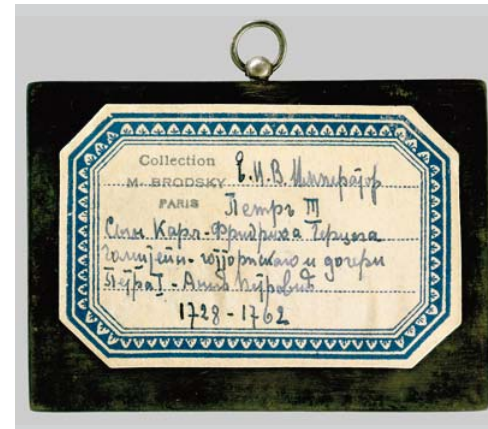 Collection
M. BRODSKY
PARIS
Е.И.В. Император
Петръ III
Сын Карл-Фридриха Герцога
Голштейн-готторпскаго и дочери
Петра I - Анны Петровны
1728 - 1762